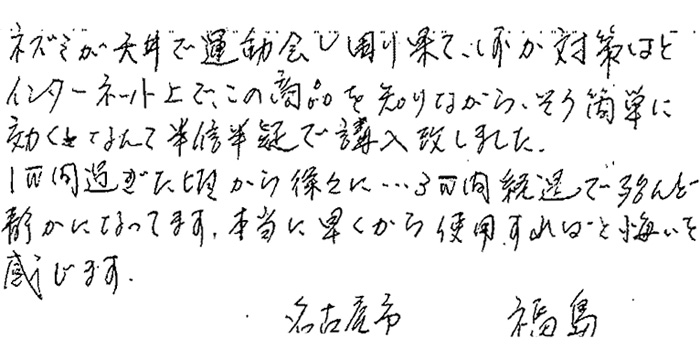 ネズミが天井で運動会し困り果て、何か対策はと
インターネット上で、この商品を知りながら、そう簡単に
効くとなんて半信半疑で購入致しました。
1週間過ぎた頃から徐々に…3週間経過でほとんど
静かになってます。本当に早くから使用すればと悔いを
感じます。
名古屋市 福島